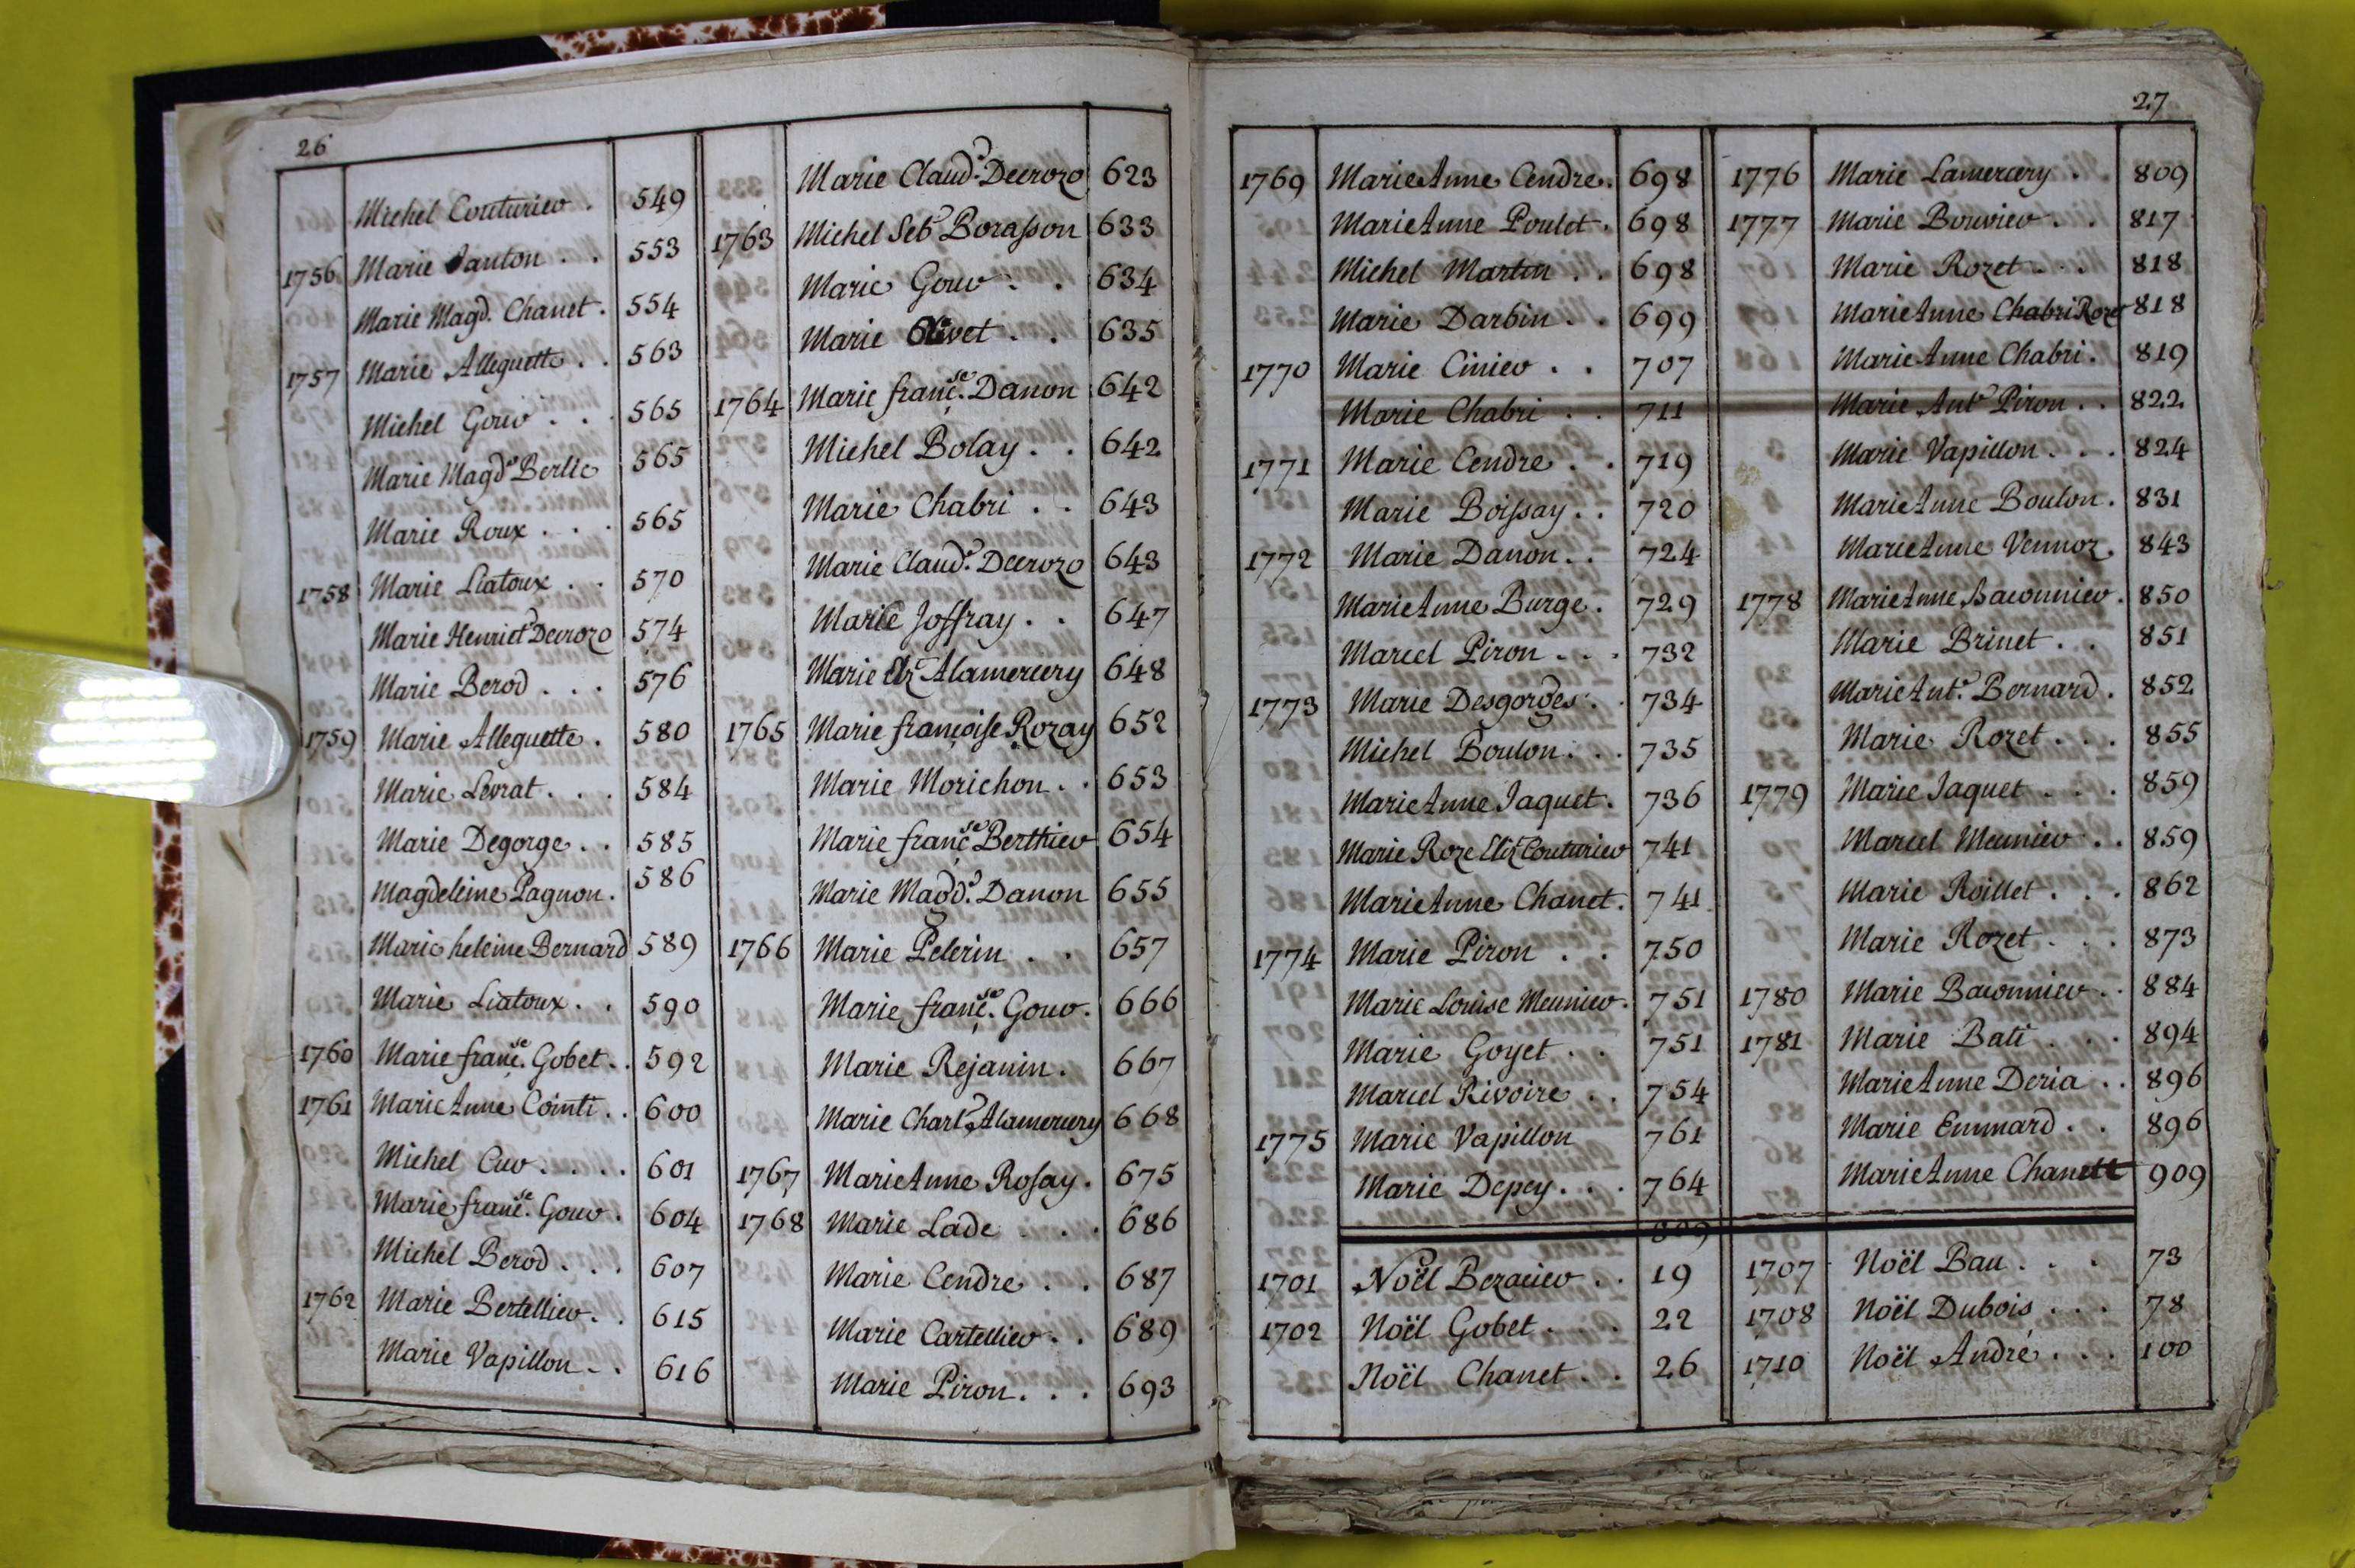 26
Michel Couturier . 549
1756 Marie Janton . . 553
Marie Magd. Chanet . 554
1757 Marie Alleguette . . 563
Michel Gour . . . 565
Marie Magde Berlie 565
Marie Roux . . . 565
1758 Marie Liatoux . . 570
Marie Henriete Decrozo 574
Marie Berod . . . 576
1759 Marie Alleguette . 580
Marie Levrat . . . 584
Marie Degorge . . 585
Magdeleine Pagnon . 586
Marie heleine Bernard 589
Marie Liatoux . . 590
1760 Marie françse. Gobet . . 592
1761 Marie Anne Cointi . . 600
Michel Cur . . . . 601
Marie françse. Gour . 604
Michel Berod . . . 607
1762 Marie Bertellier . . 615
Marie Vapillon . . 616
Marie Claude. Decrozo 623
1763 Michel Sebe Borasson 633
Marie Gour . . 634
Marie Olivet . . 635
1764 Marie françse. Danon 642
Michel Bolay . . 642
Marie Chabri . . 643
Marie Claude. Decrozo 643
Marie Joffray . . 647
Marie Elz Alamercery 648
1765 Marie françoise Rozay 652
Marie Morichon . . 653
Marie françse Berthier 654
Marie Magde. Danon 655
1766 Marie Pelerin . . 657
Marie françse. Gour . 666
Marie Rejanin . 667
Marie Charle Alamercery 668
1767 Marie Anne Rosay . 675
1768 Marie Lade . . . 686
Marie Cendre . . 687
Marie Cartellier . . 689
Marie Piron . . . 693
27
1769 Marie Anne Cendre . 698
Marie Anne Poulet . 698
Michel Martin . . 698
Marie Darbin . . 699
1770 Marie Cinier . . 707
Marie Chabri . . 711
1771 Marie Cendre . . 719
Marie Boissay . . 720
1772 Marie Danon . . 724
Marie Anne Burge . 729
Marcel Piron . . . 732
1773 Marie Desgorges . . 734
Michel Boulon . . . 735
Marie Anne Jaquet . 736
Marie Roze Elz Couturier 741
Marie Anne Chanet . 741
1774 Marie Piron . . 750
Marie Louise Meunier . 751
Marie Goyet . . 751
Marcel Rivoire . . 754
1775 Marie Vapillon 761
Marie Depey . . . 764
809
1776 Marie Lamercery . 809
1777 Marie Bouvier . . 817
Marie Rozet . . . 818
Marie Anne Chabri Roze 818
Marie Anne Chabri . 819
Marie Ante Piron . . 822
Marie Vapillon . . . 824
Marie Anne Boulon . 831
Marie Anne Vennoz . 843
1778 Marie Anne Baconnier . 850
Marie Brinet . . 851
Marie Ante. Bernard . 852
Marie Rozet . . . 855
1779 Marie Jaquet . . . 859
Marcel Meunier . . 859
Marie Roillet . . . 862
Marie Rozet . . . 873
1780 Marie Baconnier . . 884
1781 Marie Bati . . . 894
Marie Anne Deria . . 896
Marie Emmard . . 896
Marie Anne Chanett 909
1701 Noël Bezacier . . 19
1702 Noël Gobet . . . 22
Noël Chanet . . 26
1707 Noël Bau . . . 73
1708 Noël Dubois . . . 78
1710 Noël André . . . 100